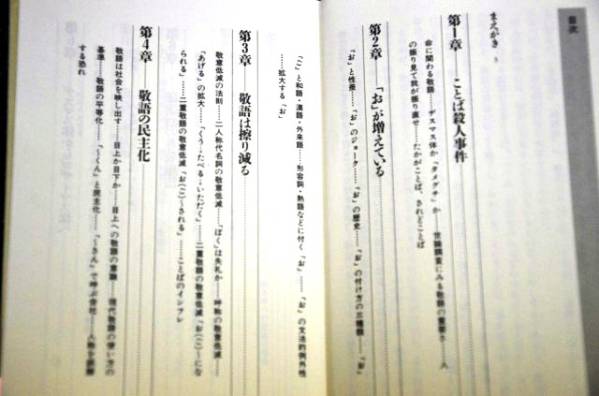 目次
まえがき
第1章　ことば殺人事件
命に関わる敬語……デスマス体か「タメグチ」か……世論調査にみる敬語の重要さ……人
の振り見て我が振り直せ……たかがことば、されどことば
第2章　「お」が増えている
「お」と性差……「お」のジョーク……「お」の歴史……「お」の付け方の三種類……「お」
「ご」と和語・漢語・外来語……形容詞・熟語などに付く「お」……「お」の文法的例外性
……拡大する「お」
第3章　敬語は擦り減る
敬意低減の法則……二人称代名詞の敬意低減……「ぼく」は失礼か……呼称の敬意低減……
「あげる」の拡大……「くう→たべる→いただく」……二重敬語の敬意低減「お（ご）～にな
られる」……二重敬語の敬意低減「お（ご）～される」……ことばのインフレ
第4章　敬語の民主化
敬語は社会を映し出す……目上か目下か……目上への敬語の意識……現代敬語の使い方の
基準……敬語の平等化……「～くん」と民主化……「～さん」で呼ぶ会社……人称を
する恐れ